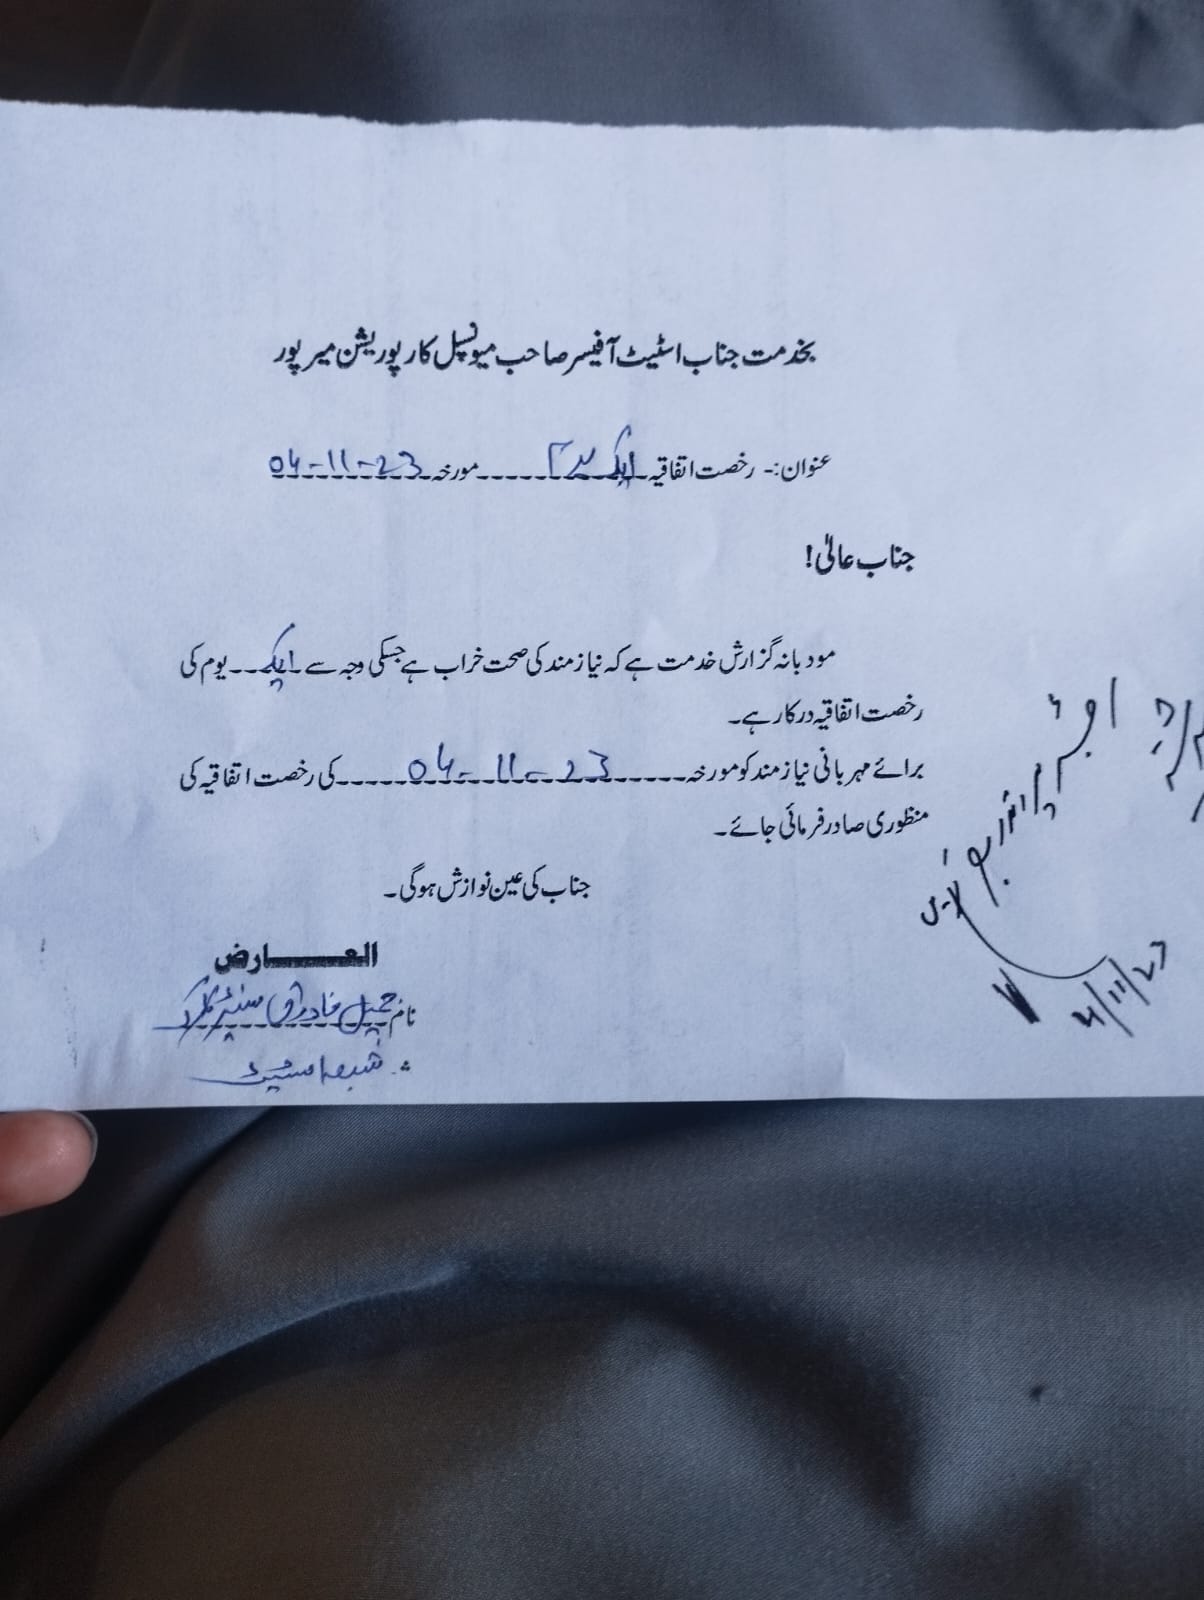 بخدمت جناب اسٹیٹ آفیسر صاحب میونسپل کارپوریشن میرپور
عنوان:- رخصت اتفاقیہ ایک یوم مورخہ 04-11-23
جناب عالیٰ!
مودبانہ گزارش خدمت ہے کہ نیازمند کی صحت خراب ہے جسکی وجہ سے ایک یوم کی
رخصت اتفاقیہ درکار ہے۔
برائے مہربانی نیازمند کو مورخہ 04-11-23 کی رخصت اتفاقیہ کی
منظوری صادر فرمائی جائے۔
جناب کی عین نوازش ہوگی۔
العارض
نام جمیل سنیئر کلرک
شعبہ اسٹیٹ
4/11/23